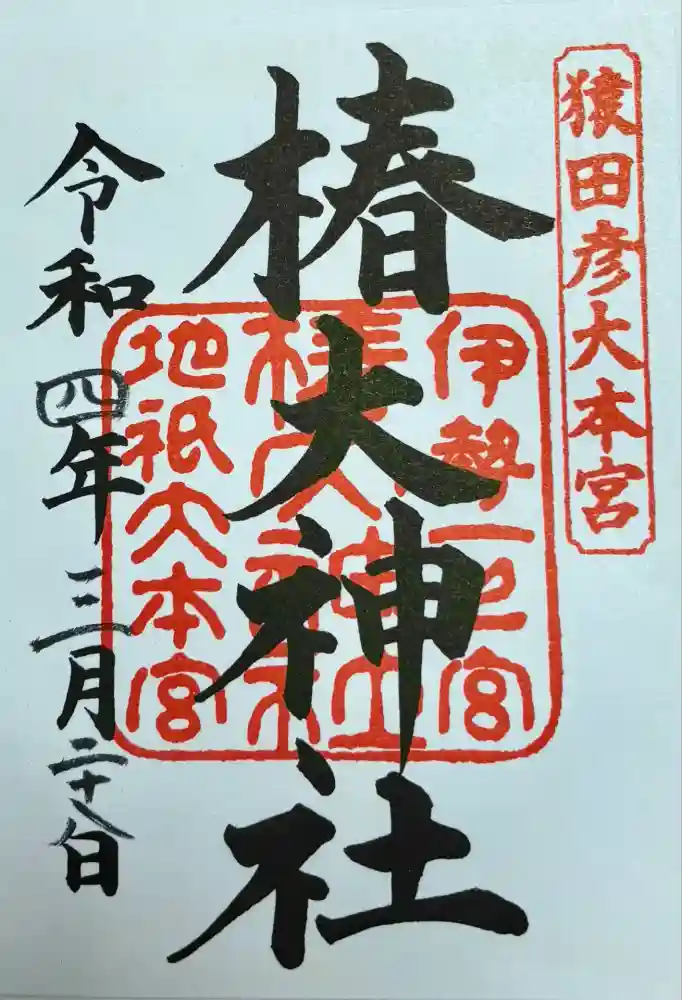 猿田彦大本宮
椿大神社
伊勢一宮
椿大神社
地祇大本宮
令和四年三月二十八日